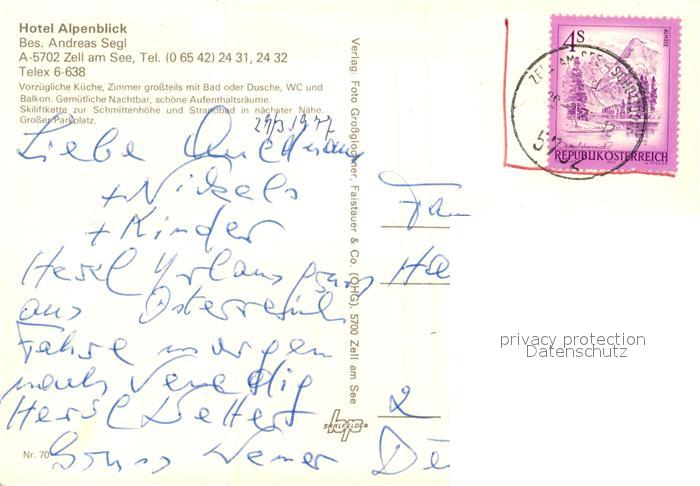 Hotel Alpenblick
Bes. Andreas Segl
A-5702 Zell am See, Tel. (0 65 42) 24 31, 24 32
Telex 6-638
Vorzügliche Küche, Zimmer großteils mit Bad oder Dusche, WC und
Balkon. Gemütliche Nachtbar, schöne Aufenthaltsräume.
Skiliftkette zur Schmittenhöhe und Strandbad in nächster Nähe.
Großer Parkplatz.
29/3 1977
Liebe
+ Nikels
+ Kinder
Hersl Urlaubsgruss
aus Österreich
Fahre morgen
nach Venedig
Hersl
Gruss Werner
Nr. 70
Verlag: Foto Großglockner, Faistauer & Co. (OHG), 5700 Zell am See
SAALFELDEN
Fam
Ha
2
De
4S
ALMSEE
REPUBLIK ÖSTERREICH
ZELL AM SEE
5702
privacy protection
Datenschutz